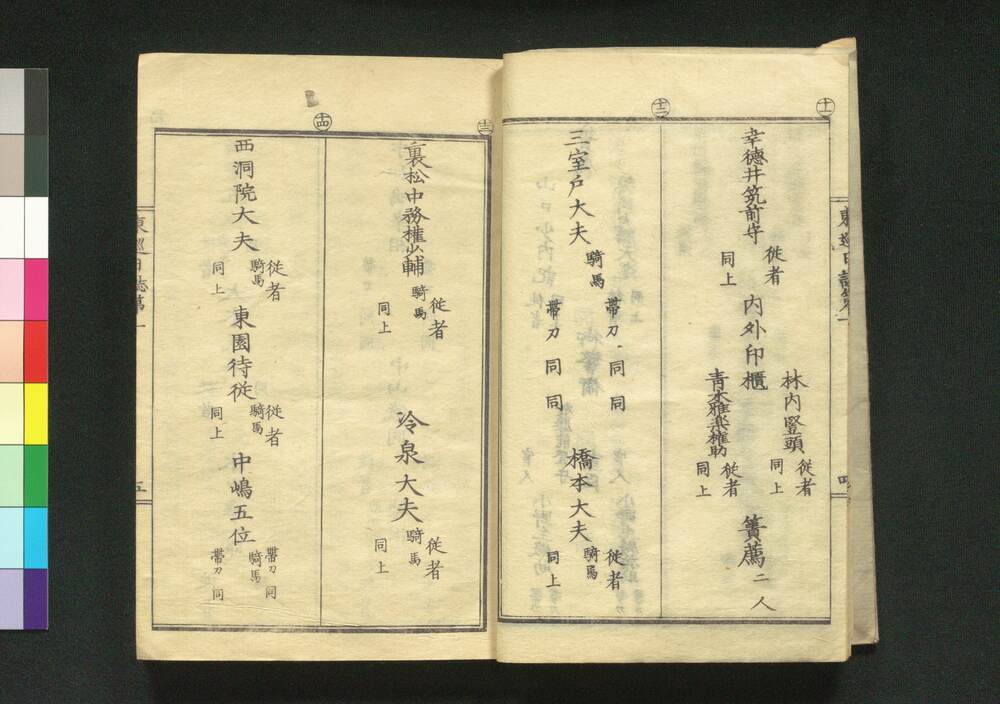 十一
幸德井筑前守
従者
同上
内外印櫃
林内豎頭
従者
同上
青木雅楽権助
従者
同上
簀薦二人
十二
三室戸大夫
騎馬
帯刀同同
帯刀同同
橋本大夫
従者
騎馬
同上
十三
裏松中務権少輔
従者
騎馬
同上
冷泉大夫
従者
騎馬
同上
十四
西洞院大夫
従者
騎馬
同上
東園待従
従者
騎馬
同上
中嶋五位
帯刀同
騎馬
帯刀同
東巡日誌第一
五